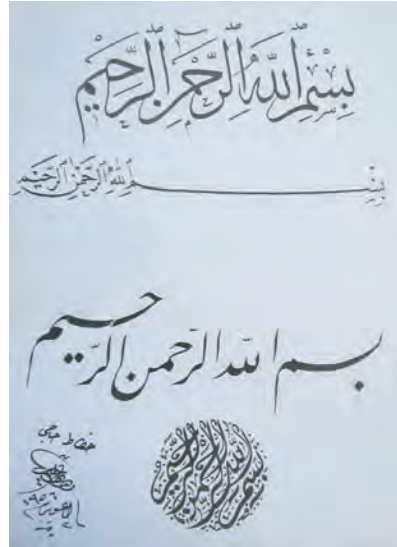 بِسْمِ اللهِ الرَّحْمٰنِ الرَّحِيْمِ
بِسْمِ اللهِ الرَّحْمٰنِ الرَّحِيْمِ
بسم الله الرحمن الرّحيم
بسم الله الرحمن الرحيم